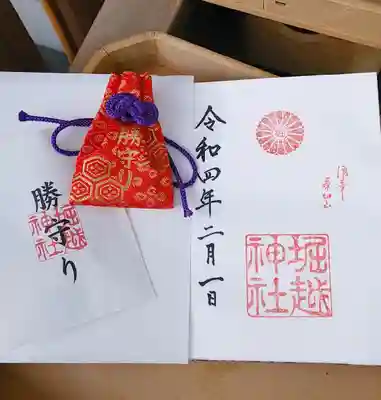 勝守り
勝守り
堀越
神社
令和四年二月一日
堀越
神社